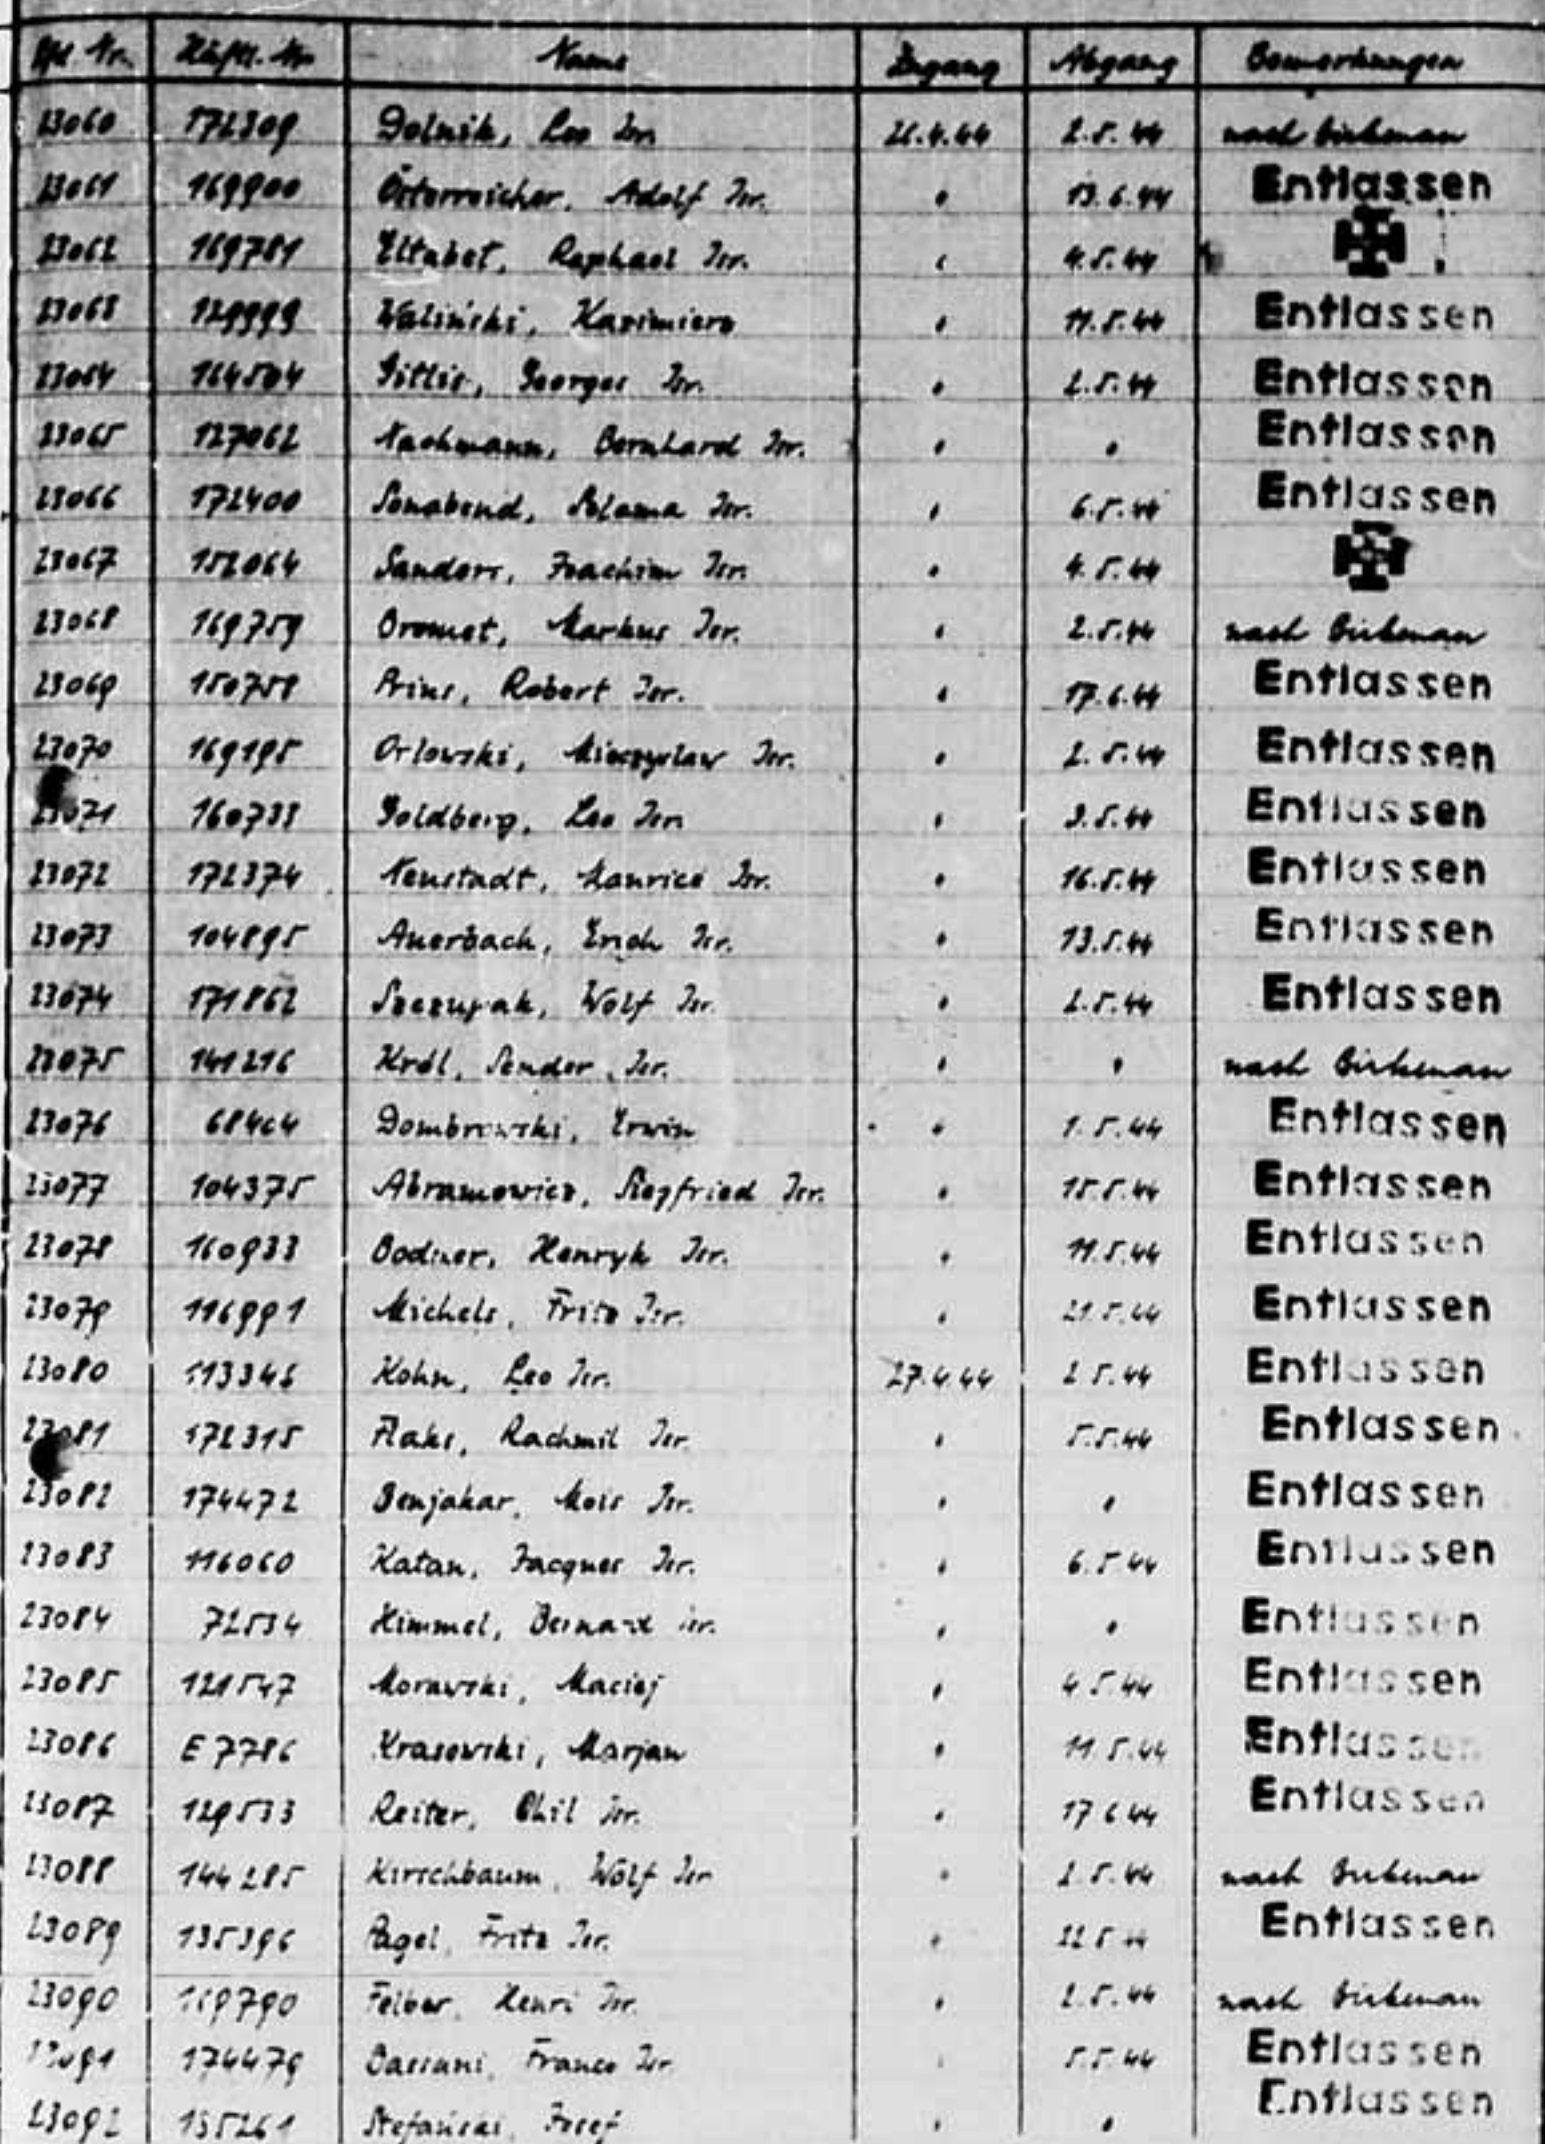 Lfd. Nr. Häftl. Nr. Name Zugang Abgang Bemerkungen
23060 172309 Dolnik, Leo Isr. 26.4.44 2.5.44 nach Birkenau
23061 169900 Österreicher, Adolf Isr. " 13.6.44 Entlassen
23062 169781 Eltabet, Raphael Isr. " 4.5.44
23063 129999 Waliński, Kazimierz " 11.5.44 Entlassen
23064 164504 Gittis, Georges Isr. " 2.5.44 Entlassen
23065 127062 Nachmann, Bernhard Isr. " " Entlassen
23066 172400 Sonabend, Szlama Isr. " 6.5.44 Entlassen
23067 152064 Sanders, Joachim Isr. " 4.5.44
23068 169759 Oromet, Markus Isr. " 2.5.44 nach Birkenau
23069 150758 Prins, Robert Isr. " 17.6.44 Entlassen
23070 169195 Orlowski, Mieczyslaw Isr. " 2.5.44 Entlassen
23071 160733 Goldberg, Leo Isr. " 3.5.44 Entlassen
23072 172374 Neustadt, Maurice Isr. " 16.5.44 Entlassen
23073 104895 Auerbach, Erich Isr. " 13.5.44 Entlassen
23074 171862 Szczupak, Wolf Isr. " 2.5.44 Entlassen
23075 141216 Król, Sender Isr. " " nach Birkenau
23076 68404 Dombrowski, Erwin " 1.5.44 Entlassen
23077 104375 Abramowicz, Siegfried Isr. " 15.5.44 Entlassen
23078 160933 Bodner, Henryk Isr. " 11.5.44 Entlassen
23079 116991 Michels, Fritz Isr. " 21.5.44 Entlassen
23080 113346 Kohn, Leo Isr. 27.4.44 2.5.44 Entlassen
23081 172315 Flaks, Rachmil Isr. " 5.5.44 Entlassen
23082 174472 Benjakar, Mois Isr. " " Entlassen
23083 116060 Katan, Jacques Isr. " 6.5.44 Entlassen
23084 72534 Himmel, Bernard Isr. " " Entlassen
23085 121547 Morawski, Maciej " 4.5.44 Entlassen
23086 E 7786 Krasowski, Marjan " 11.5.44 Entlassen
23087 129533 Reiter, Chil Isr. " 17.6.44 Entlassen
23088 144285 Kirschbaum, Wolf Isr. " 2.5.44 nach Birkenau
23089 135396 Pagel, Fritz Isr. " 22.5.44 Entlassen
23090 169790 Felber, Henri Isr. " 2.5.44 nach Birkenau
23091 174479 Bassani, Franco Isr. " 5.5.44 Entlassen
23092 135261 Stefański, Josef " " Entlassen